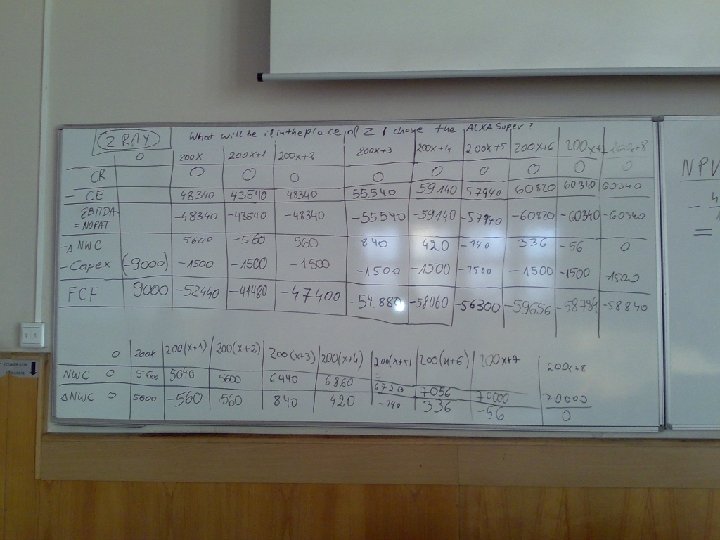 2 PLAY What will be if in the place of Z I change the ALXA Super?
0 200X 200X+1 200X+2 200X+3 200X+4 200X+5 200X+6 200X+8
CR 0 0 0 0 0 0 0 0 0
- CE 48340 48340 55540 59140 57940 60820 60340 60340
EBITDA -48340 -48340 -55540 -59140 -60820 -60340 -60340
= NOPAT
Δ NWC 5600 -560 560 840 420 -140 336 -56 0
- Capex (-9000) -1500 -1500 -1500 -1500 -1500 -1500 -1500 -1500 -1500
FCF 9000 -52440 -47400 -54.880 -56300 -59656 -58840
0 200X 200(X+1) 200(X+2) 200(X+3) 200(X+4) 200(X+5) 200(X+6) 200X+7 200X+8
NWC 0 5600 5600 6440 6860 7056
ΔNWC 0 5600 -560 560 840 420 -140 336 -56 0
NPV
=